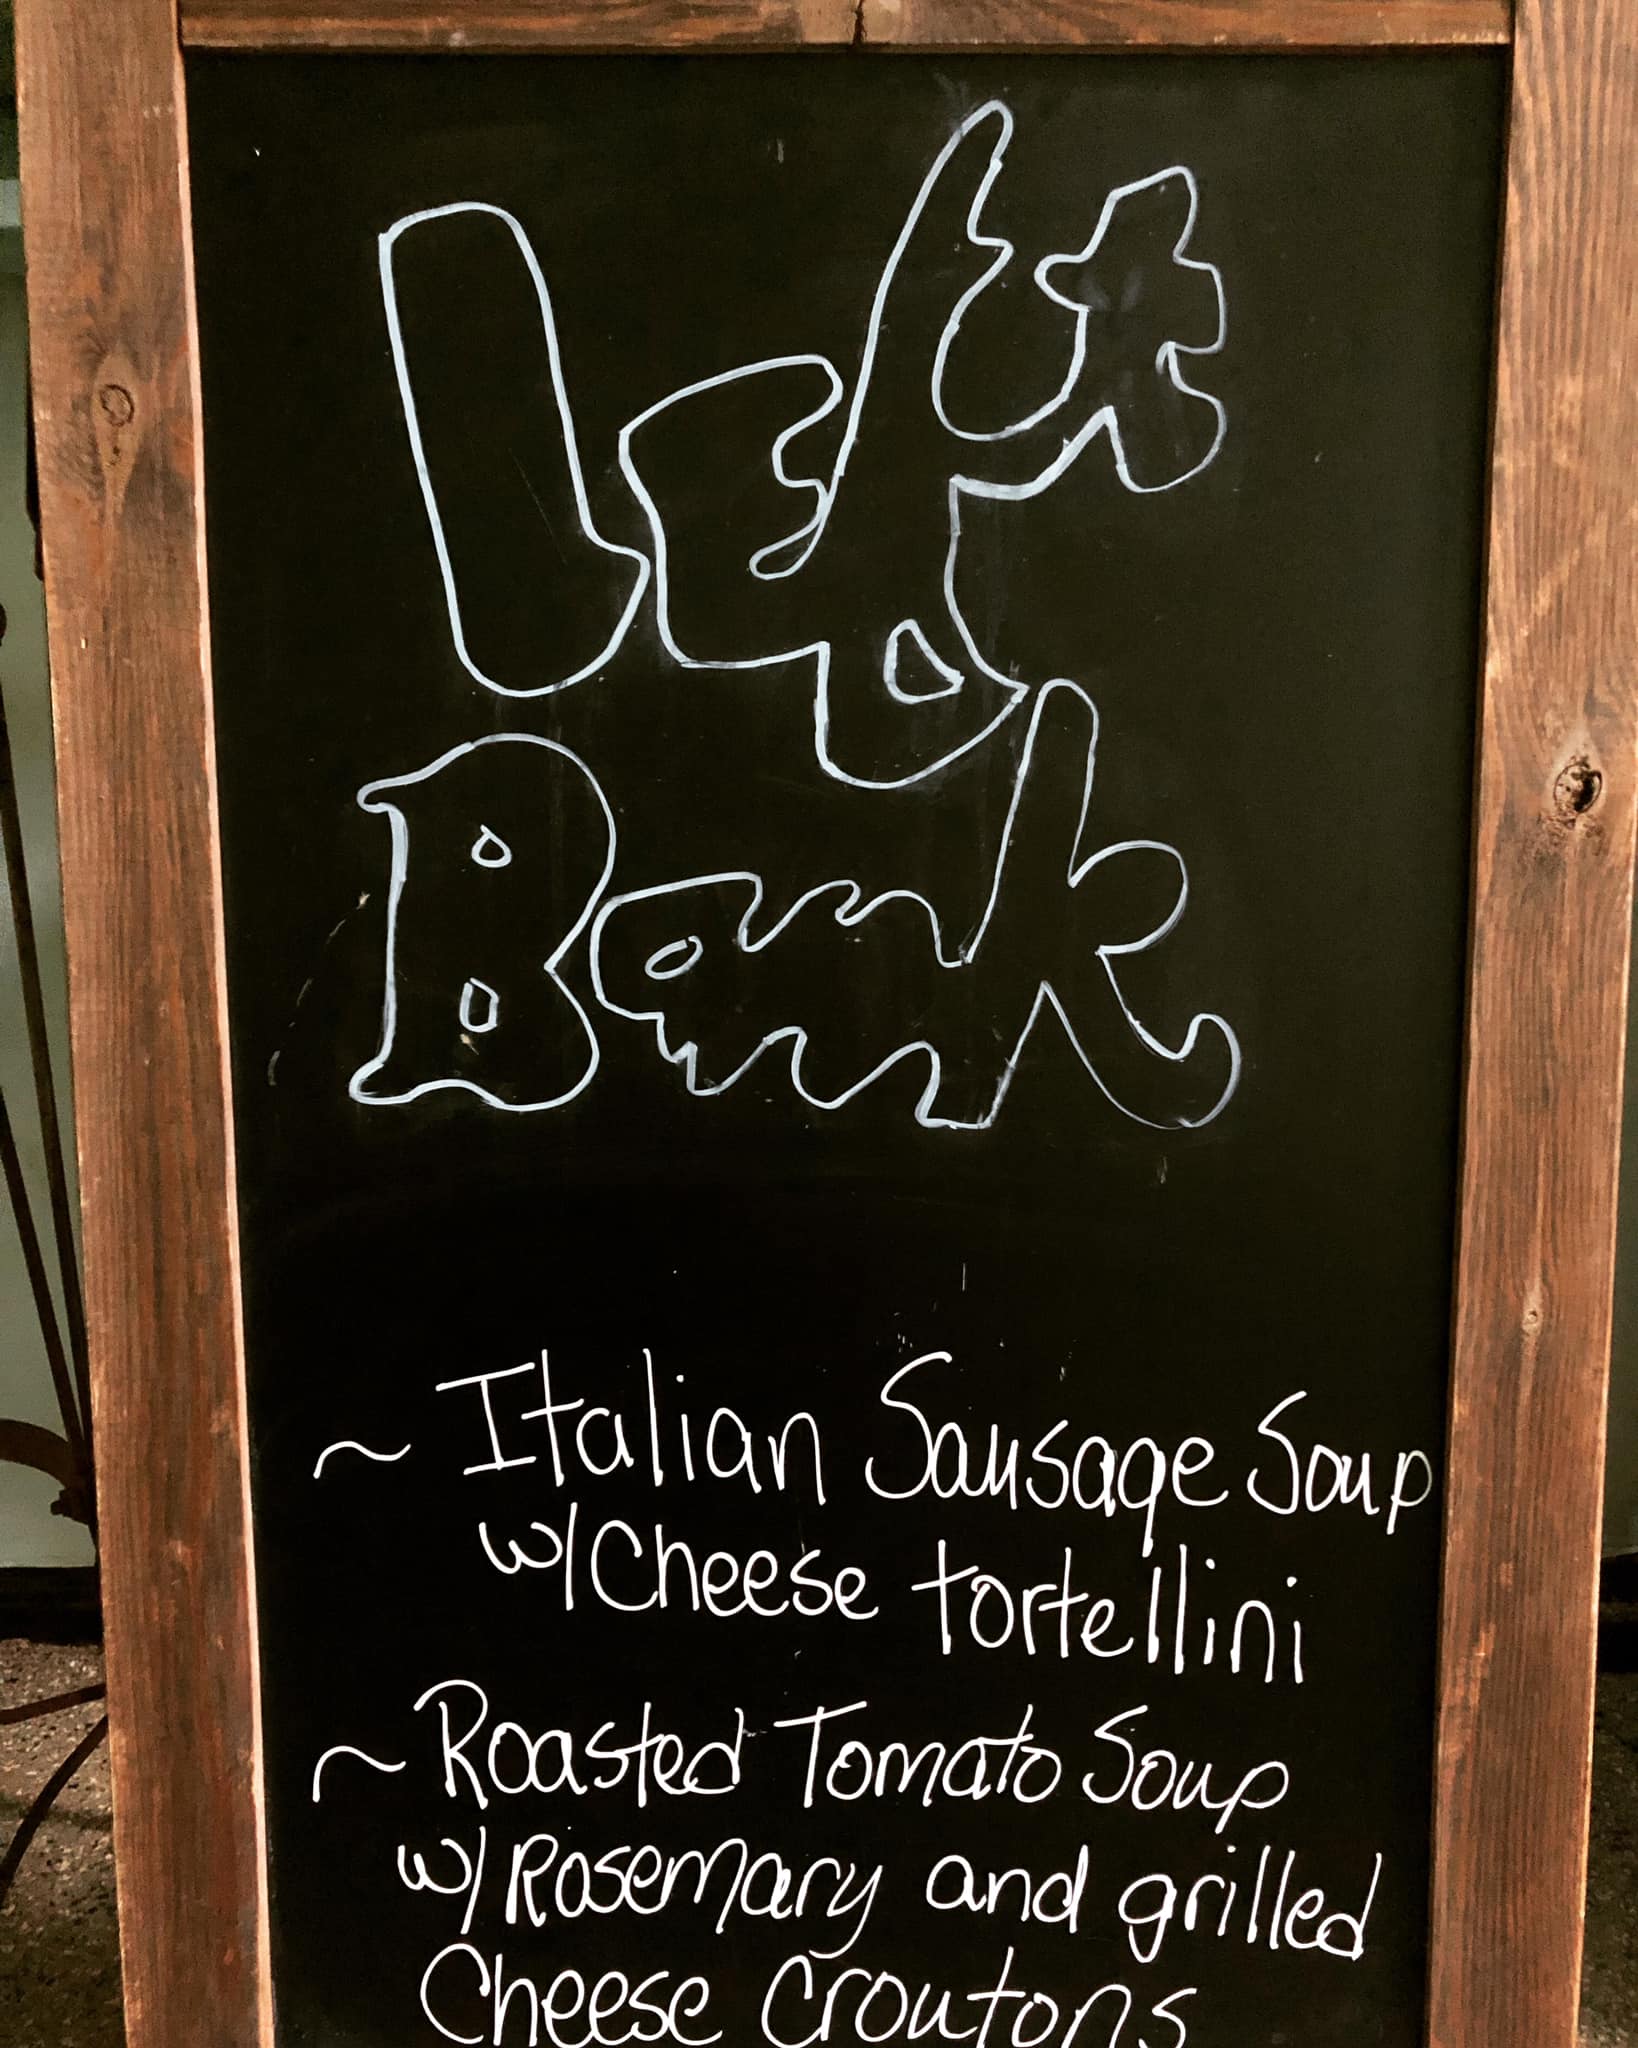 Left
Bank
~ Italian Sausage Soup
w/ Cheese tortellini
~ Roasted Tomato Soup
w/ Rosemary and grilled
Cheese Croutons